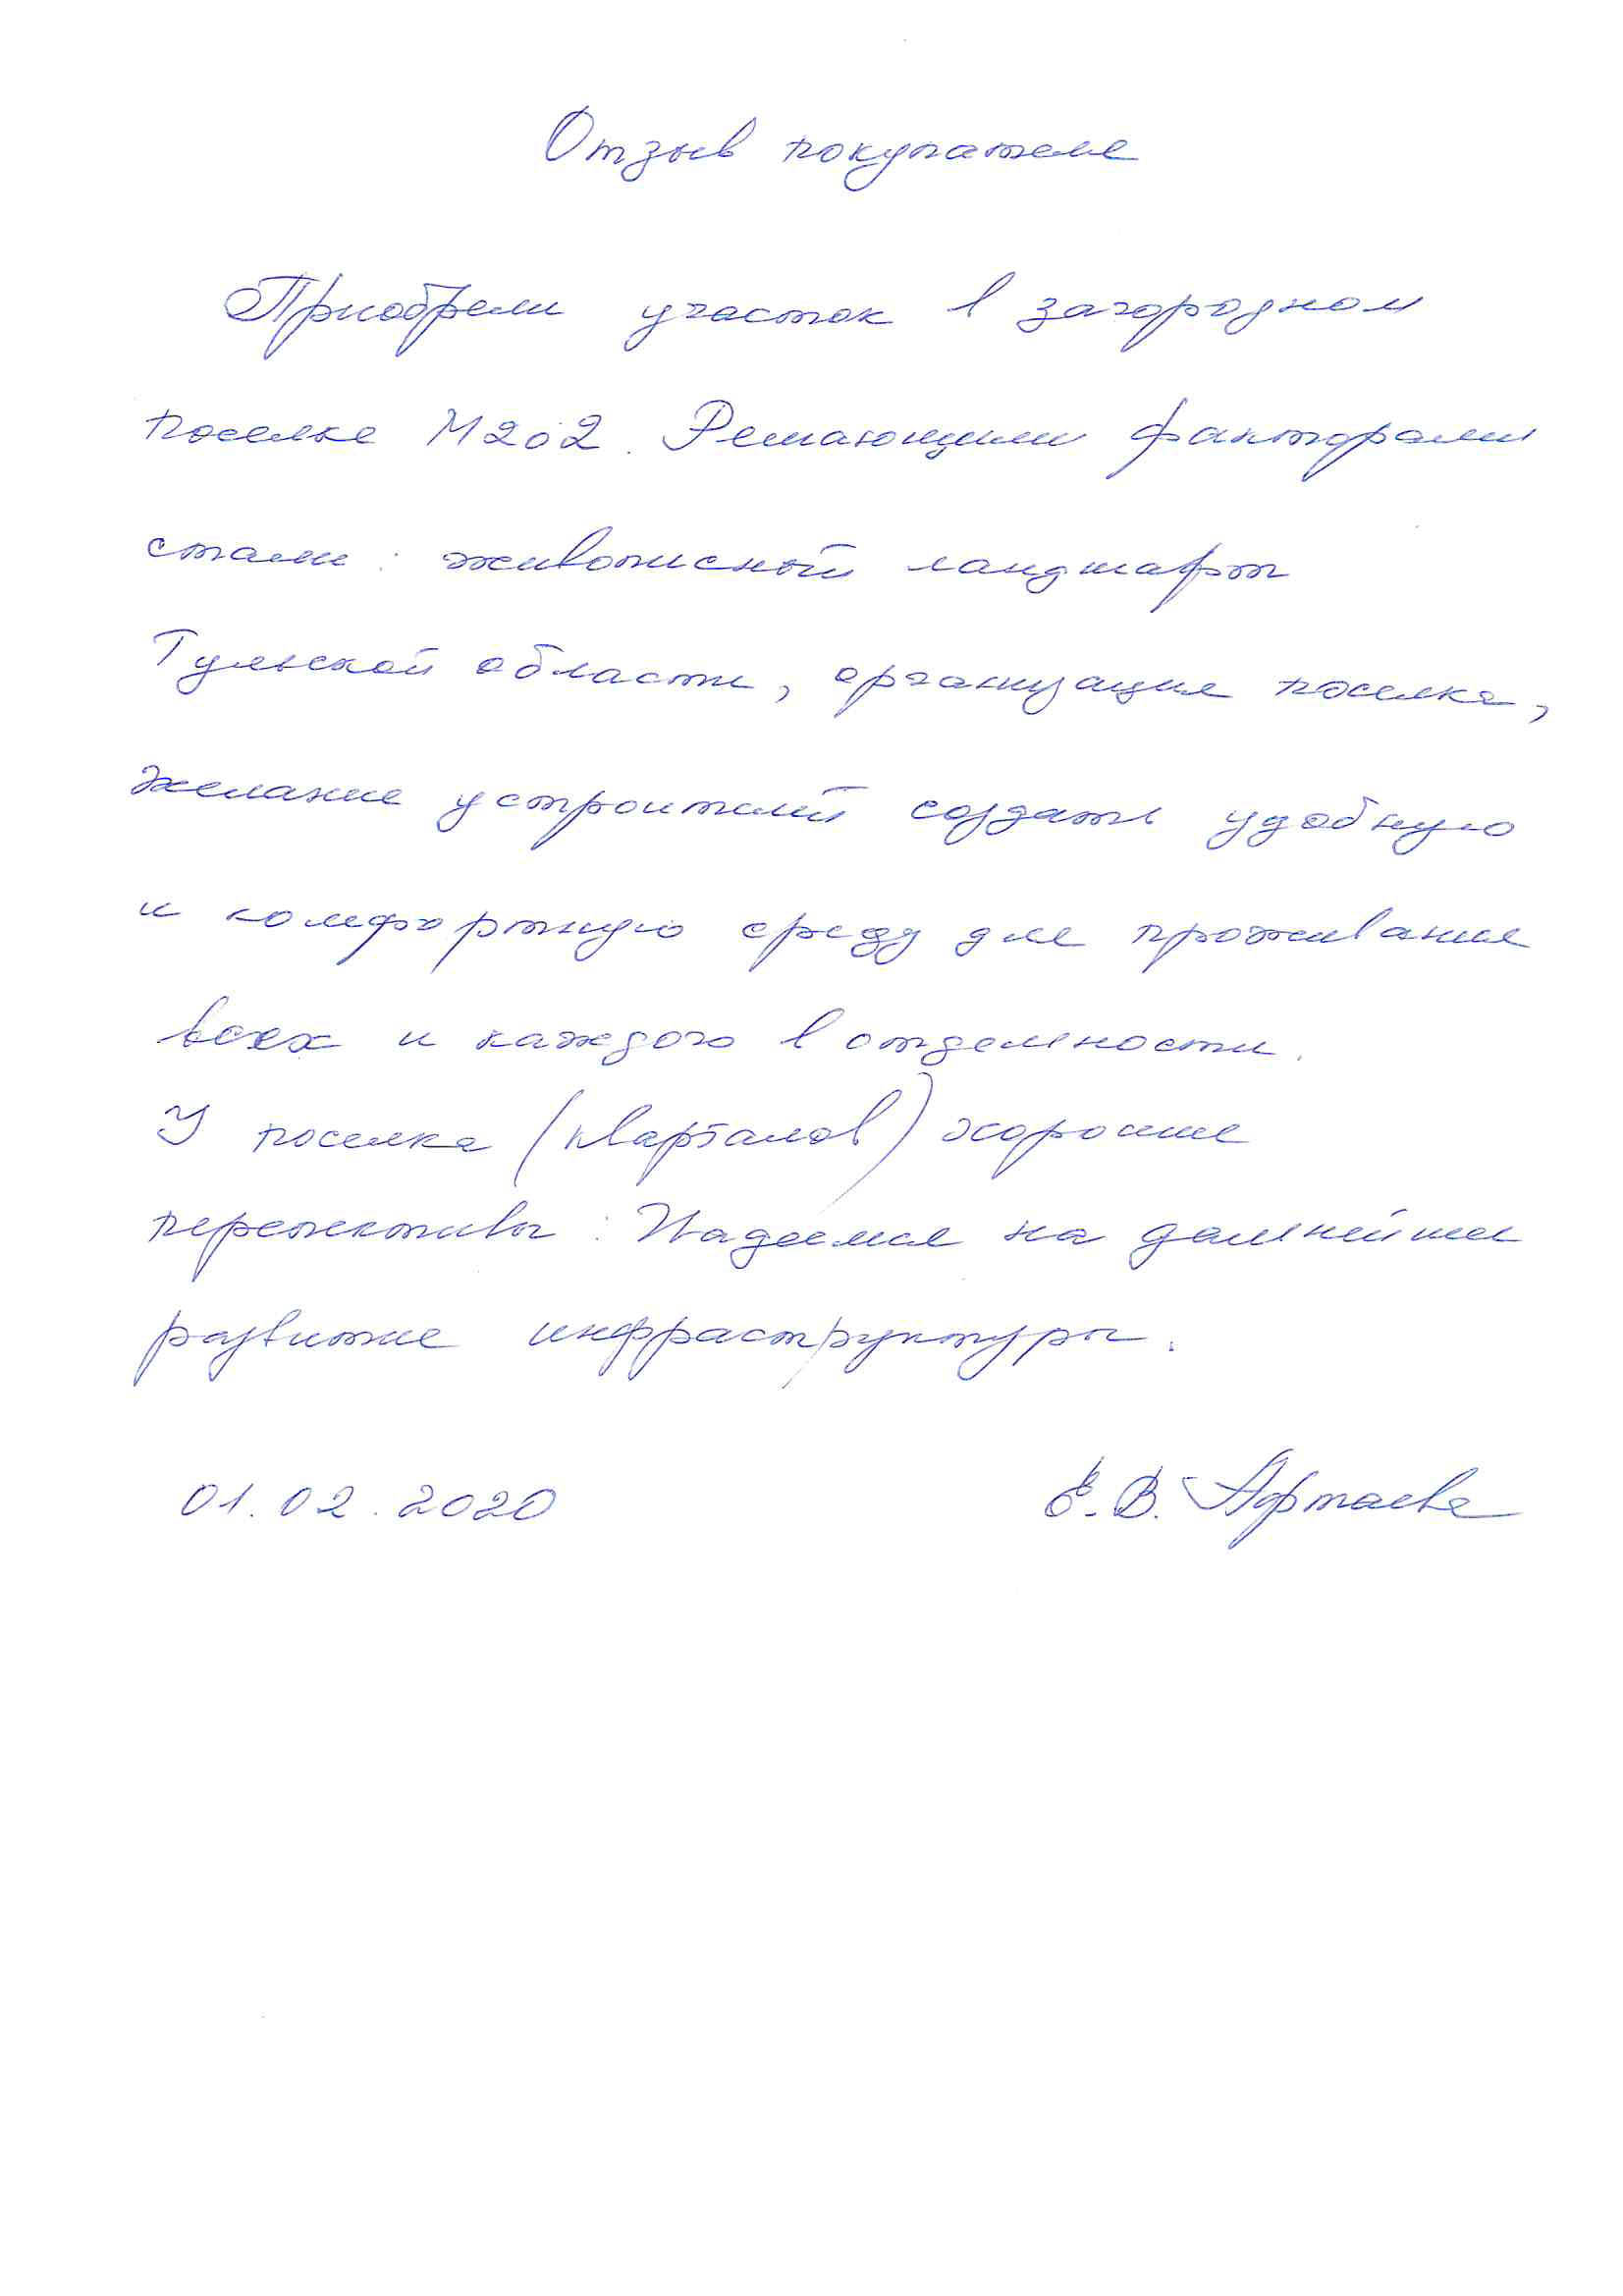 Отзыв покупателя
Приобрели участок в загородном
поселке М2о2. Решающими факторами
стали: живописный ландшафт
Тульской области, организация поселка,
желание устроителей создать удобную
и комфортную среду для проживания
всех и каждого в отдельности.
У поселка (кварталов) хорошие
перспективы. Надеемся на дальнейшее
развитие инфраструктуры.
01.02.2020 Е.В.